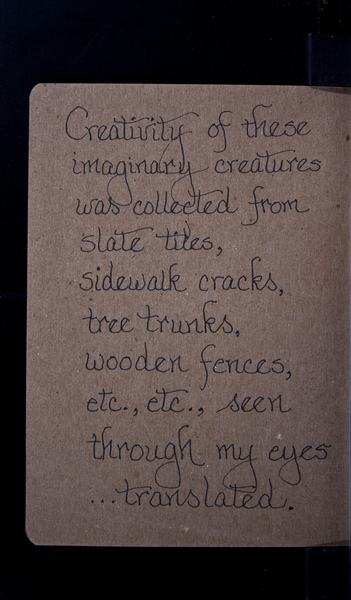 Creativity of these
imaginary creatures
was collected from
slate tiles,
sidewalk cracks,
tree trunks,
wooden fences,
etc., etc., seen
through my eyes
...translated.